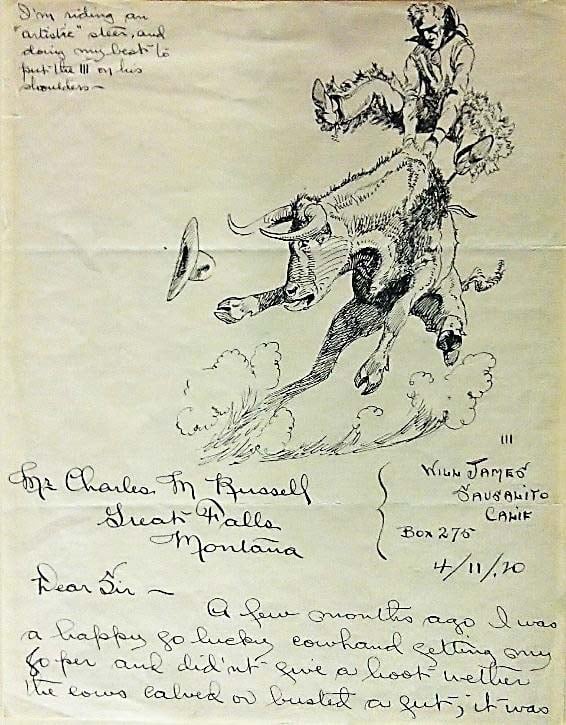 I'm riding an
"artistic" steer, and
doing my best to
put the III on his
shoulders —
III
Mr Charles M Russell
Great Falls
Montana
Will James
Sausalito
Calif
Box 275
4/11/20
Dear Sir —
A few months ago I was
a happy go lucky cowhand getting my
per and did'nt give a hoot wether
the cows calved or busted a gut; it was